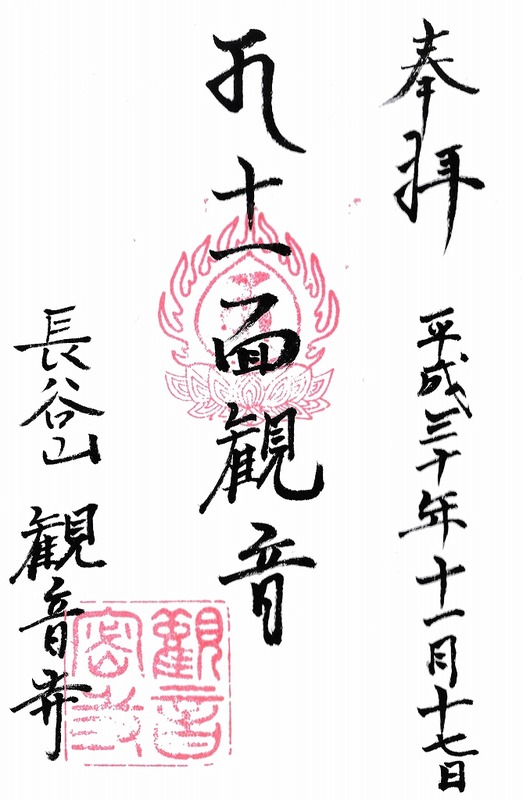 奉拝 平成三十年十一月十七日
十一面観音
長谷山 観音寺
觀音
密寺